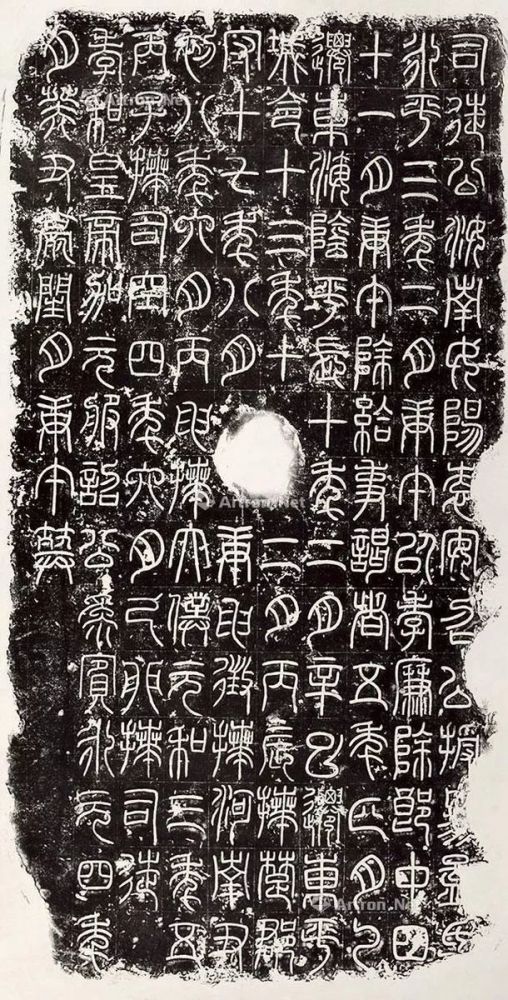 司徒公汝南女陽袁安召公授易孟氏
永平三年二月庚午以孝廉除郎中四
十一月庚午除給事謁者五年四月乙
遷東海陰平長十年二月辛巳遷東平
城令十三年十二月丙辰拜楚郡
守十七年八月庚申徵拜河南尹
初八年六月丙申拜太僕元和三年五
丙子拜司空四年六月己卯拜司徒
孝和皇帝加元服詔公為賓永元四年
月癸丑薨閏月庚午葬
Artron.Net
Artron.Net
Artron.Net
Artron.Net
Artron.Net